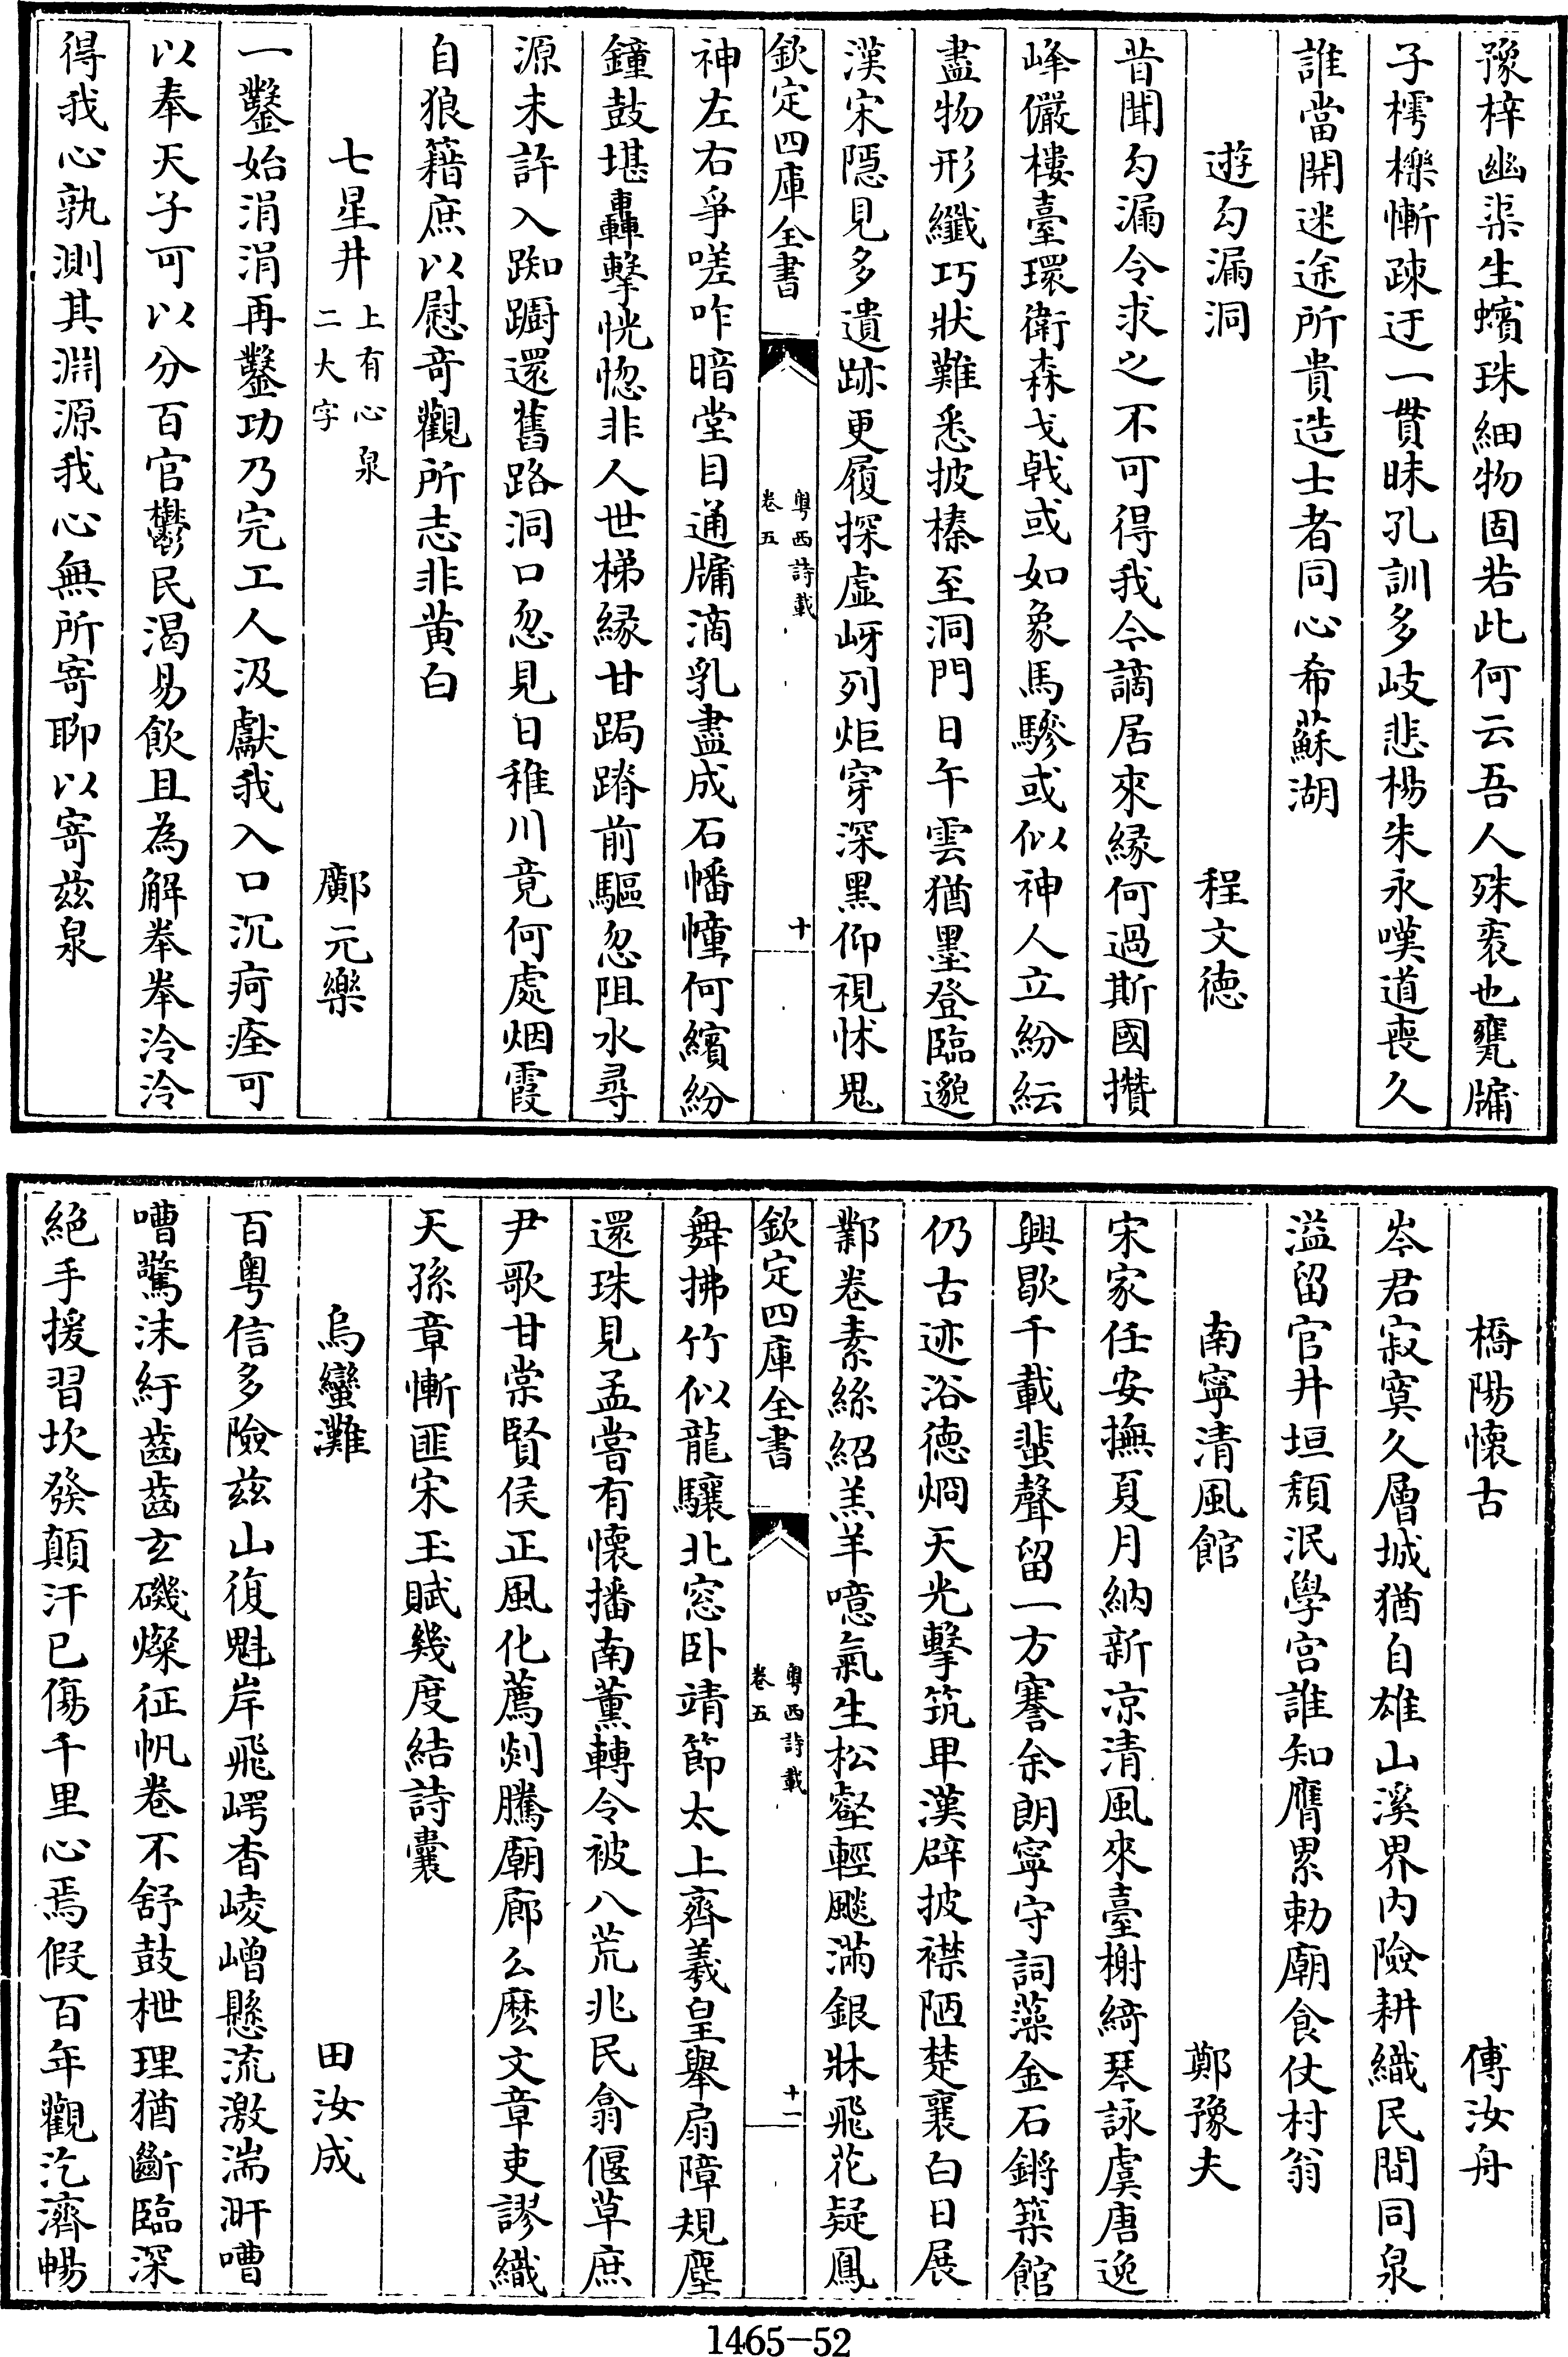 豫梓幽渠生蠙珠細物固若此何云吾人殊袤也甕牗
子樗櫟慚疎迂一貫昧孔訓多岐悲楊朱永嘆道喪久
誰當開迷途所貴造士者同心希蘇湖
遊勾漏洞　程文德
昔聞勾漏令求之不可得我今謫居來縁何過斯國攢
峰儼樓臺環衛森戈戟或如象馬驂或似神人立紛紜
盡物形纖巧狀難悉披榛至洞門日午雲猶墨登臨邈
漢宋隱見多遺跡更履探虛岈列炬穿深黑仰視怵鬼
欽定四庫全書　粤西詩載卷五　十
神左右爭嗟咋暗堂目通牗滴乳盡成石幡幢何繽紛
鐘鼓堪轟擊恍惚非人世梯縁甘跼蹐前驅忽阻水尋
源未許入踟躕還舊路洞口忽見日稚川竟何處烟霞
自狼籍庶以慰奇觀所志非黃白
七星井上有心泉二大字　鄺元樂
一鑿始涓涓再鑿功乃完工人汲獻我入口沉疴痊可
以奉天子可以分百官鬱民渴易飲且為解拳拳泠泠
得我心孰測其淵源我心無所寄聊以寄茲泉
橋陽懷古　傅汝舟
岑君寂寞久層城猶自雄山溪界內險耕織民間同泉
溢留官井垣頹泯學宮誰知膺累勅廟食仗村翁
南寧清風館　鄭豫夫
宋家任安撫夏月納新凉清風來臺榭綺琴詠虞唐逸
興歇千載蜚聲留一方謇余朗寧守詞藻金石鏘築館
仍古迹浴德烱天光擊筑卑漢辟披襟陋楚襄白日展
鄴卷素絲紹羔羊噫氣生松壑輕颸滿銀牀飛花疑鳳
欽定四庫全書　粤西詩載卷五　十一
舞拂竹似龍驤北窓卧靖節太上齊羲皇舉扇障規塵
還珠見孟嘗有懷播南薰轉令被八荒兆民翕偃草庶
尹歌甘棠賢侯正風化薦剡騰廟廊么麽文章吏謬織
天孫章慚匪宋玉賦幾度結詩囊
烏蠻灘　田汝成
百粵信多險茲山復魁岸飛崿杳崚嶒懸流激湍汧嘈
嘈驚沫紆齒齒玄磯燦征帆卷不舒鼓枻理猶斷臨深
絕手援習坎發顛汗已傷千里心焉假百年觀汔濟暢
1465-52